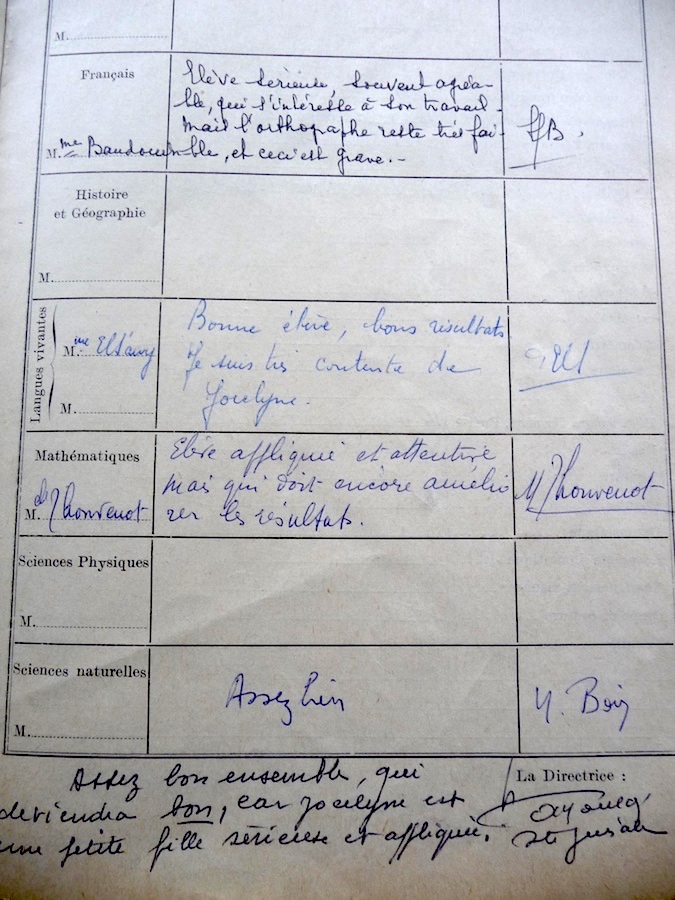 M.
Français
Elève sérieuse, souvent agréa-
ble, qui s'intéresse à son travail.
Mais l'orthographe reste très fai-
M.me Baudouin
ble, et ceci est grave.-
Histoire
et Géographie
M.
Langues vivantes
M.me
M.
Bonne élève, bons résultats
Je suis très contente de
Jocelyne.
Mathématiques
M.elle Thouvenot
Elève appliquée et attentive
mais qui doit encore amélio
rer les résultats.
M Thouvenot
Sciences Physiques
M.
Sciences naturelles
M.
Assez bien
Assez bon ensemble, qui
deviendra bon, car Jocelyne est
une petite fille sérieuse et appliquée.
La Directrice :